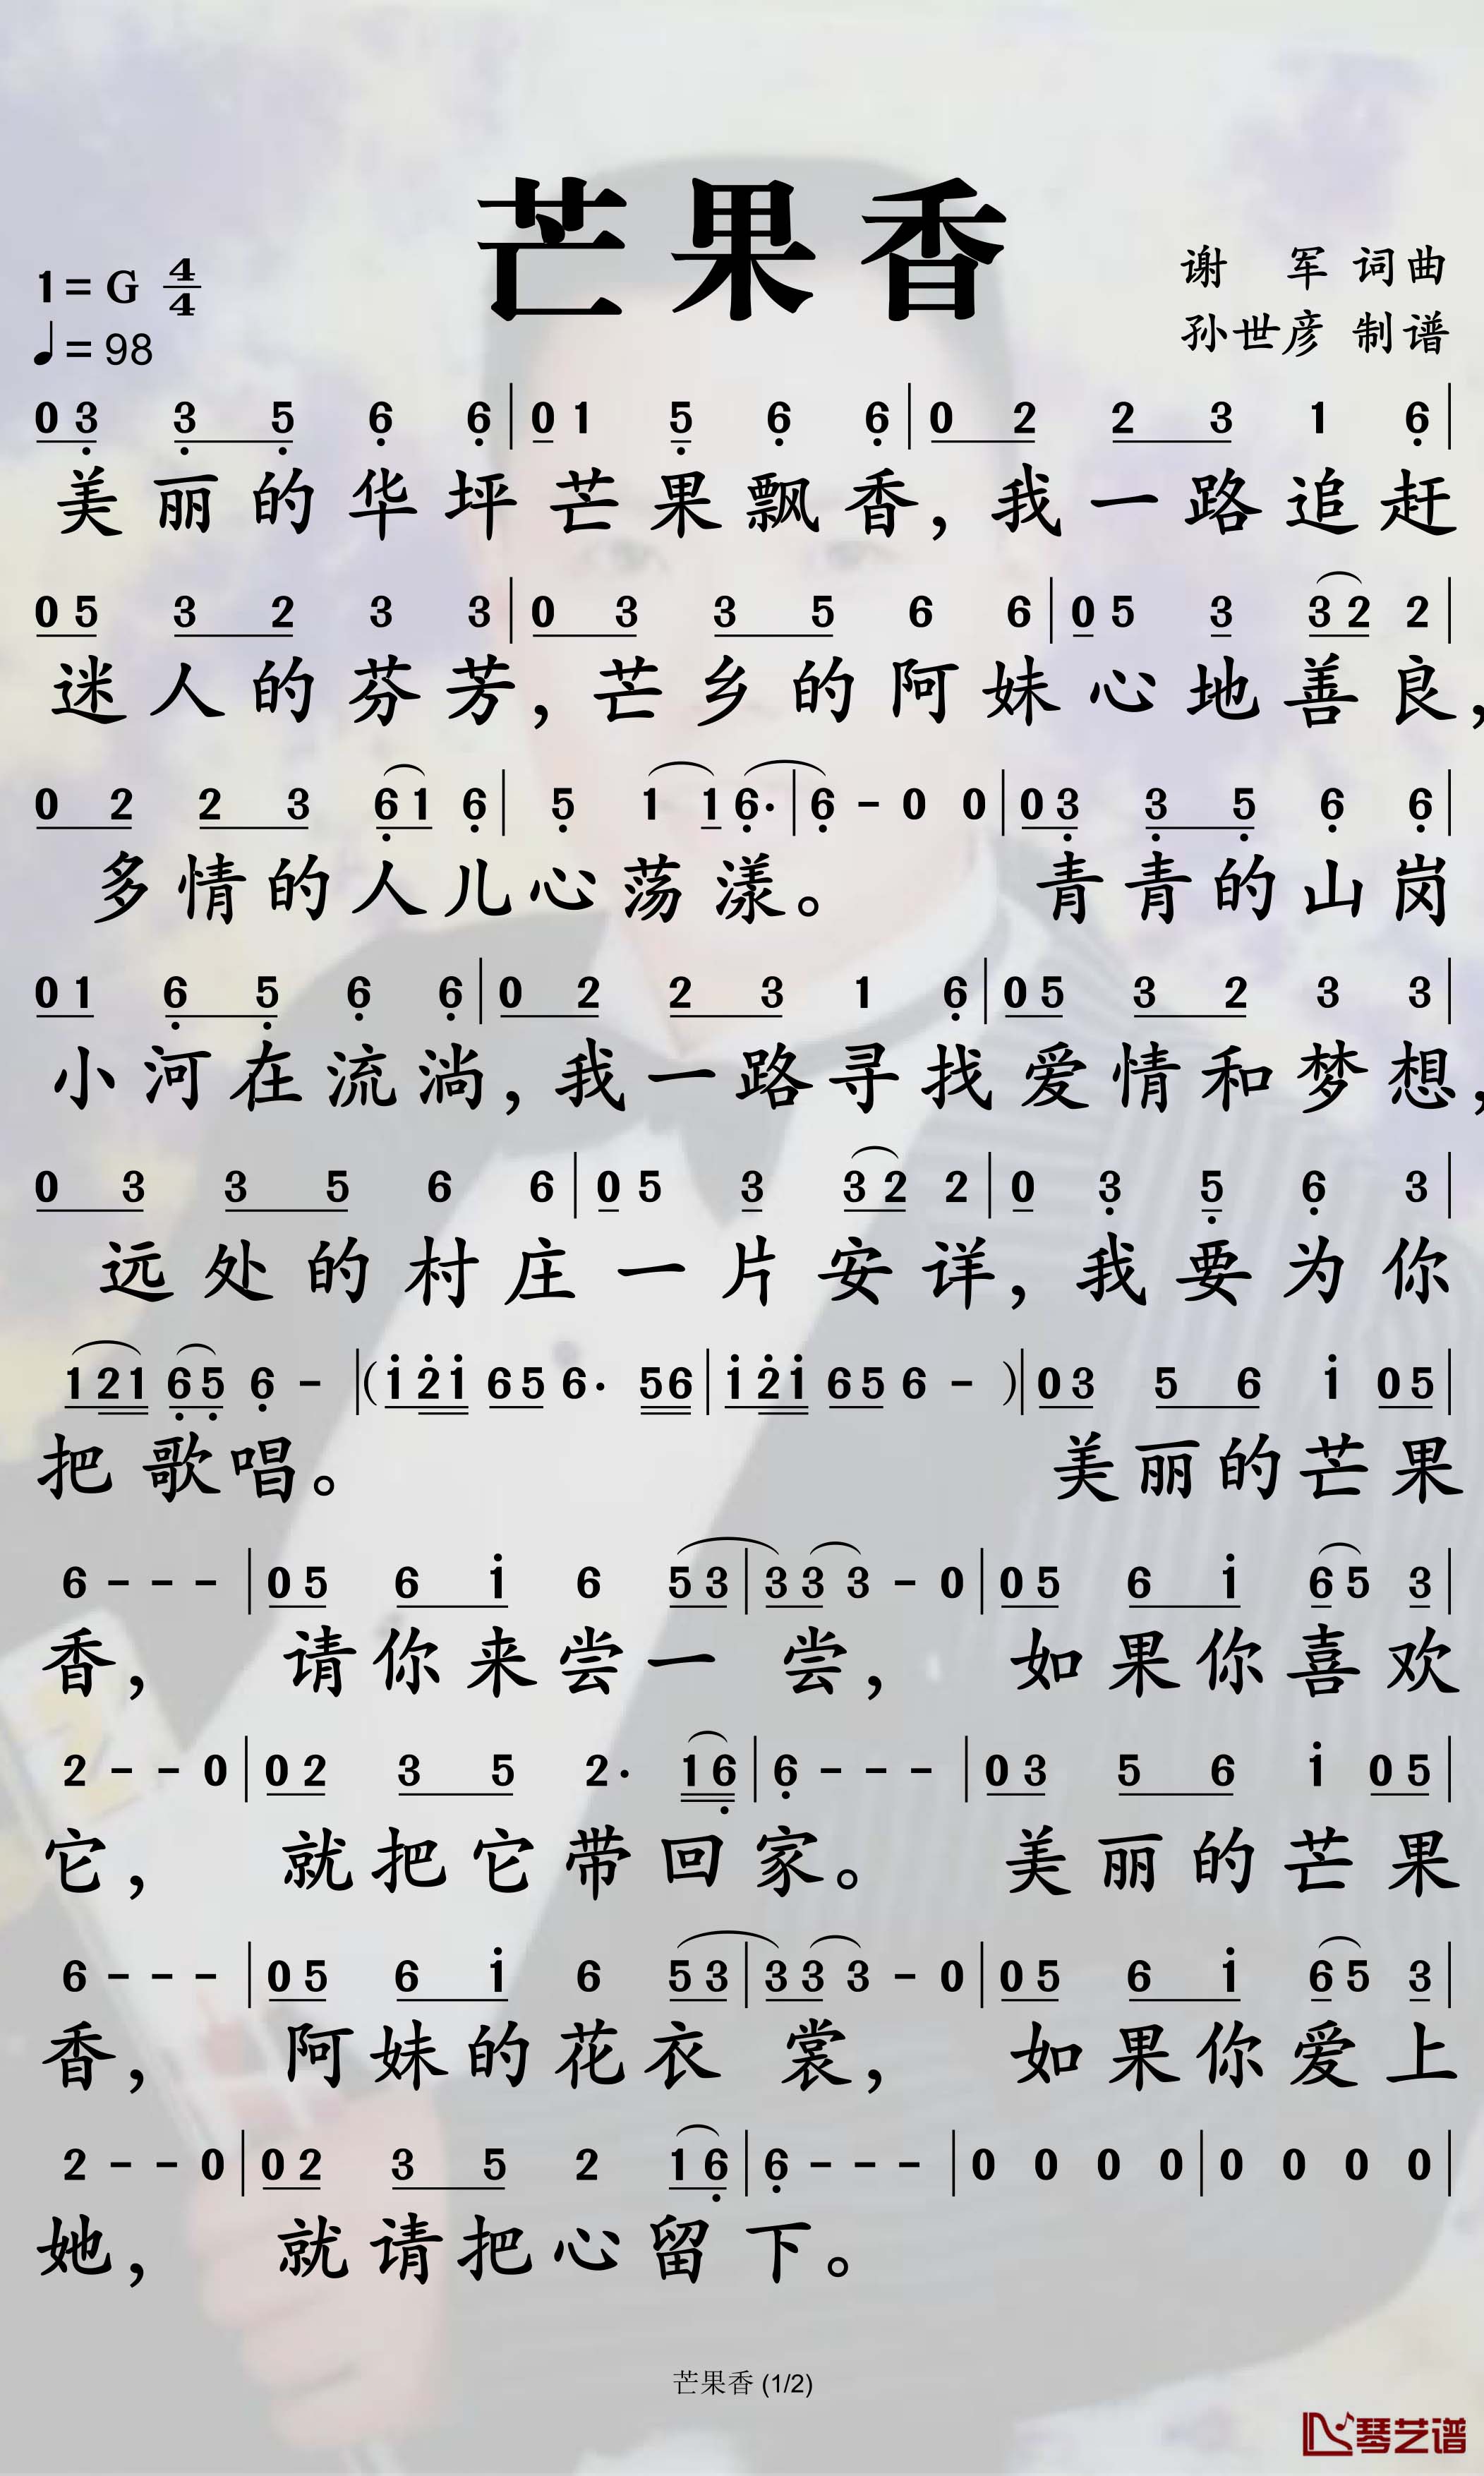 芒果香
1=G 4/4
♩=98
谢 军 词曲
孙世彦 制谱
0 3 3 5 6 6 | 0 1 5 6 6 | 0 2 2 3 1 6 |
美丽的华坪芒果飘香，我一路追赶
0 5 3 2 3 3 | 0 3 3 5 6 6 | 0 5 3 3 2 2 |
迷人的芬芳，芒乡的阿妹心地善良，
0 2 2 3 6 1 6 | 5 1 1 6· | 6 - 0 0 | 0 3 3 5 6 6 |
多情的人儿心荡漾。 青青的山岗
0 1 6 5 6 6 | 0 2 2 3 1 6 | 0 5 3 2 3 3 |
小河在流淌，我一路寻找爱情和梦想，
0 3 3 5 6 6 | 0 5 3 3 2 2 | 0 3 5 6 3 |
远处的村庄一片安详，我要为你
1 2 1 6 5 6 - | (1 2 1 6 5 6· 5 6 | 1 2 1 6 5 6 - ) | 0 3 5 6 1 0 5 |
把歌唱。 美丽的芒果
6 - - - | 0 5 6 1 6 5 3 | 3 3 3 - 0 | 0 5 6 1 6 5 3 |
香， 请你来尝一尝， 如果你喜欢
2 - - 0 | 0 2 3 5 2· 1 6 | 6 - - - | 0 3 5 6 1 0 5 |
它， 就把它带回家。 美丽的芒果
6 - - - | 0 5 6 1 6 5 3 | 3 3 3 - 0 | 0 5 6 1 6 5 3 |
香， 阿妹的花衣裳， 如果你爱上
2 - - 0 | 0 2 3 5 2 1 6 | 6 - - - | 0 0 0 0 | 0 0 0 0 |
她， 就请把心留下。
芒果香 (1/2)
琴艺谱